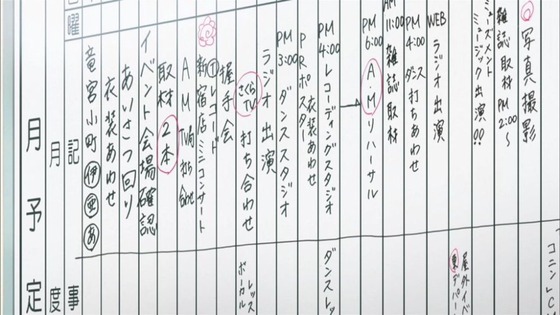 写真撮影
雑誌取材 PM2:00～
ューズメント
ミュージック出演!!
WEB ラジオ出演
PM4:00 ダンス打ちあわせ
AM11:00 雑誌取材
PM6:00 A・Mリハーサル
PM4:00 レコーディングスタジオ
衣装あわせ
PRポスター
PM3:00 ダンススタジオ
ラジオ出演
さくらTV 打ち合わせ
握手会
Ⓣレコード
新宿店ミニコンサート
A.M TV局打ち合わせ
取材2本
イベント会場確認
あいさつ回り
衣装あわせ
竜宮小町 伊 亜 あ
屋外イベ
東デパー
ダンスレッ
レッス
ボーカル
曜
記事
月度
月予定